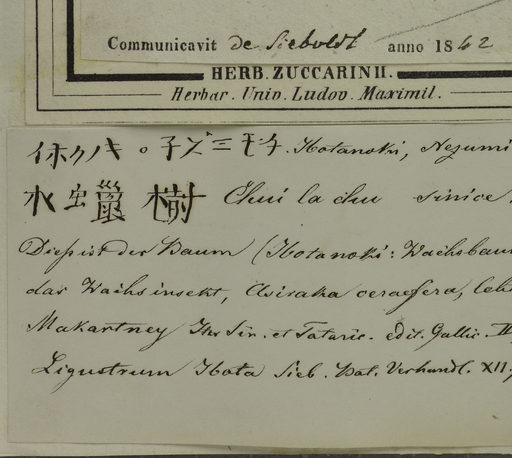 Communicavit de Sieboldt anno 1842
HERB. ZUCCARINII.
Herbar. Univ. Ludov. Maximil.
イホタノキ 。 子ズミモチ. Ibotanoki, Nezumi
水虫蠟樹 Chui la chu sinice.
Dieß ist der Baum (Ibotanoki: Wachsbaum
das Wachsinsekt, Asiraka ceraefera, leb
Makartney Itr Sin. et Tataric. edit. Gallic. II
Ligustrum Ibota Sieb. Bat. Verhandl. XII.